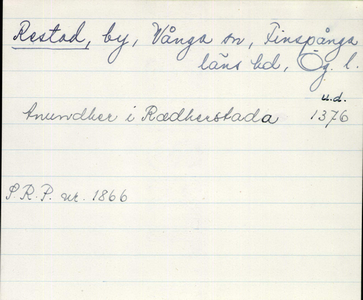 Restad, by, Vånga sn, Finspånga
läns hd, Ög. l.
u.d.
Anundher i Rædherstada 1376
S.R.P. nr. 1866